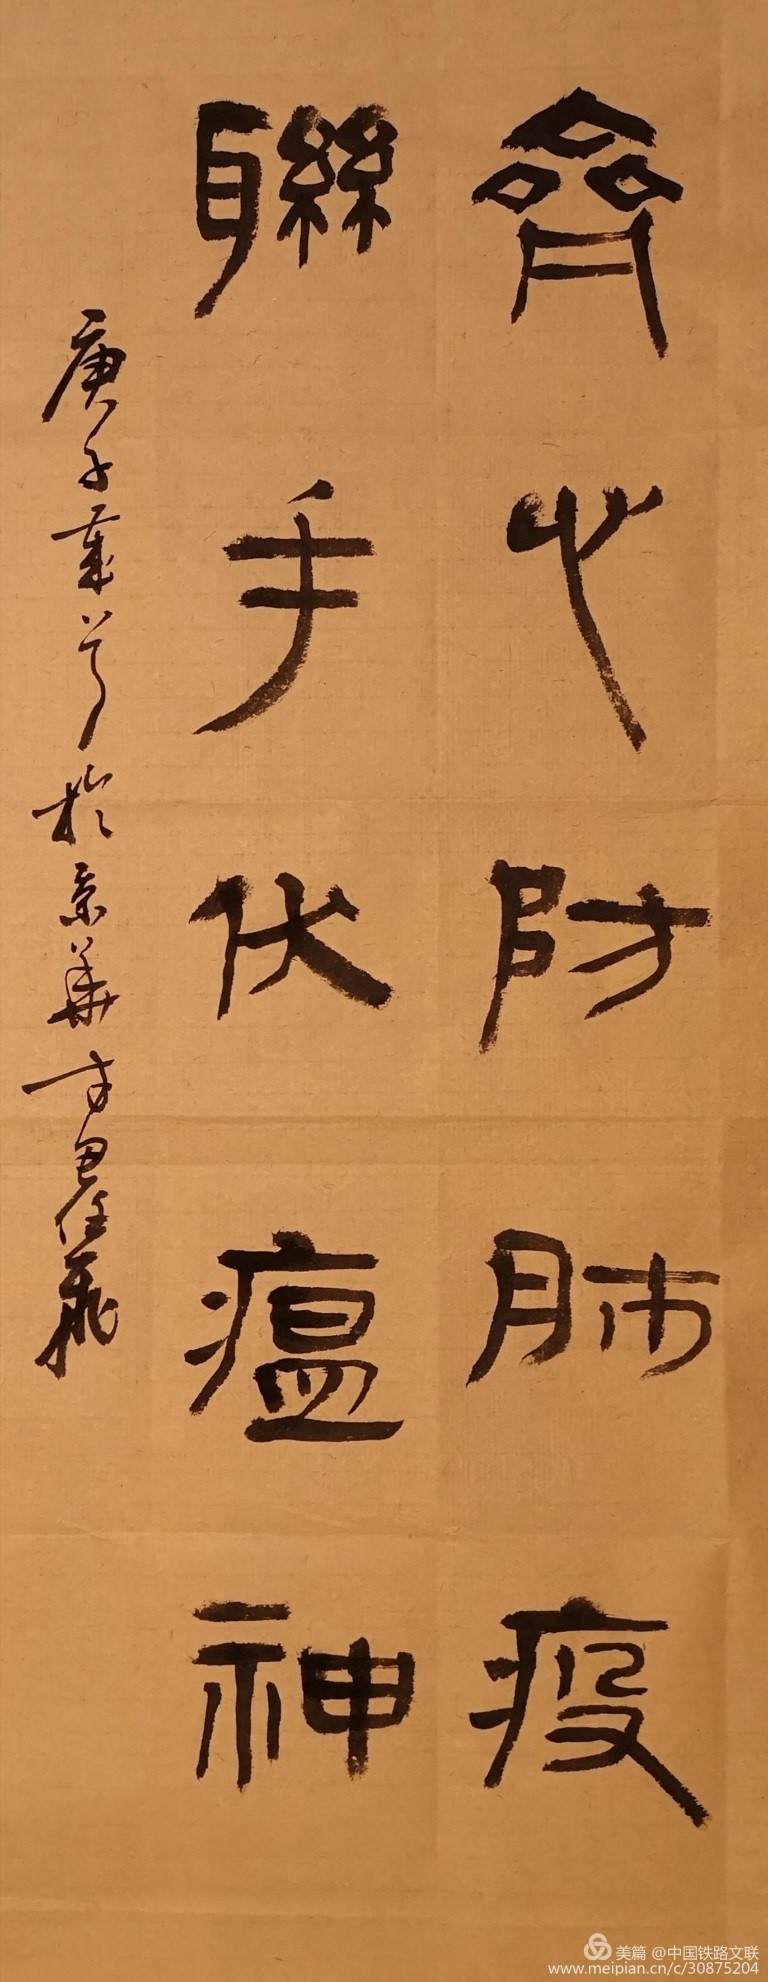 齊心防肺疫
聯手伏瘟神
庚子歲首於京華方邑任飛
美篇 @中国铁路文联
www.meipian.cn/c/30875204